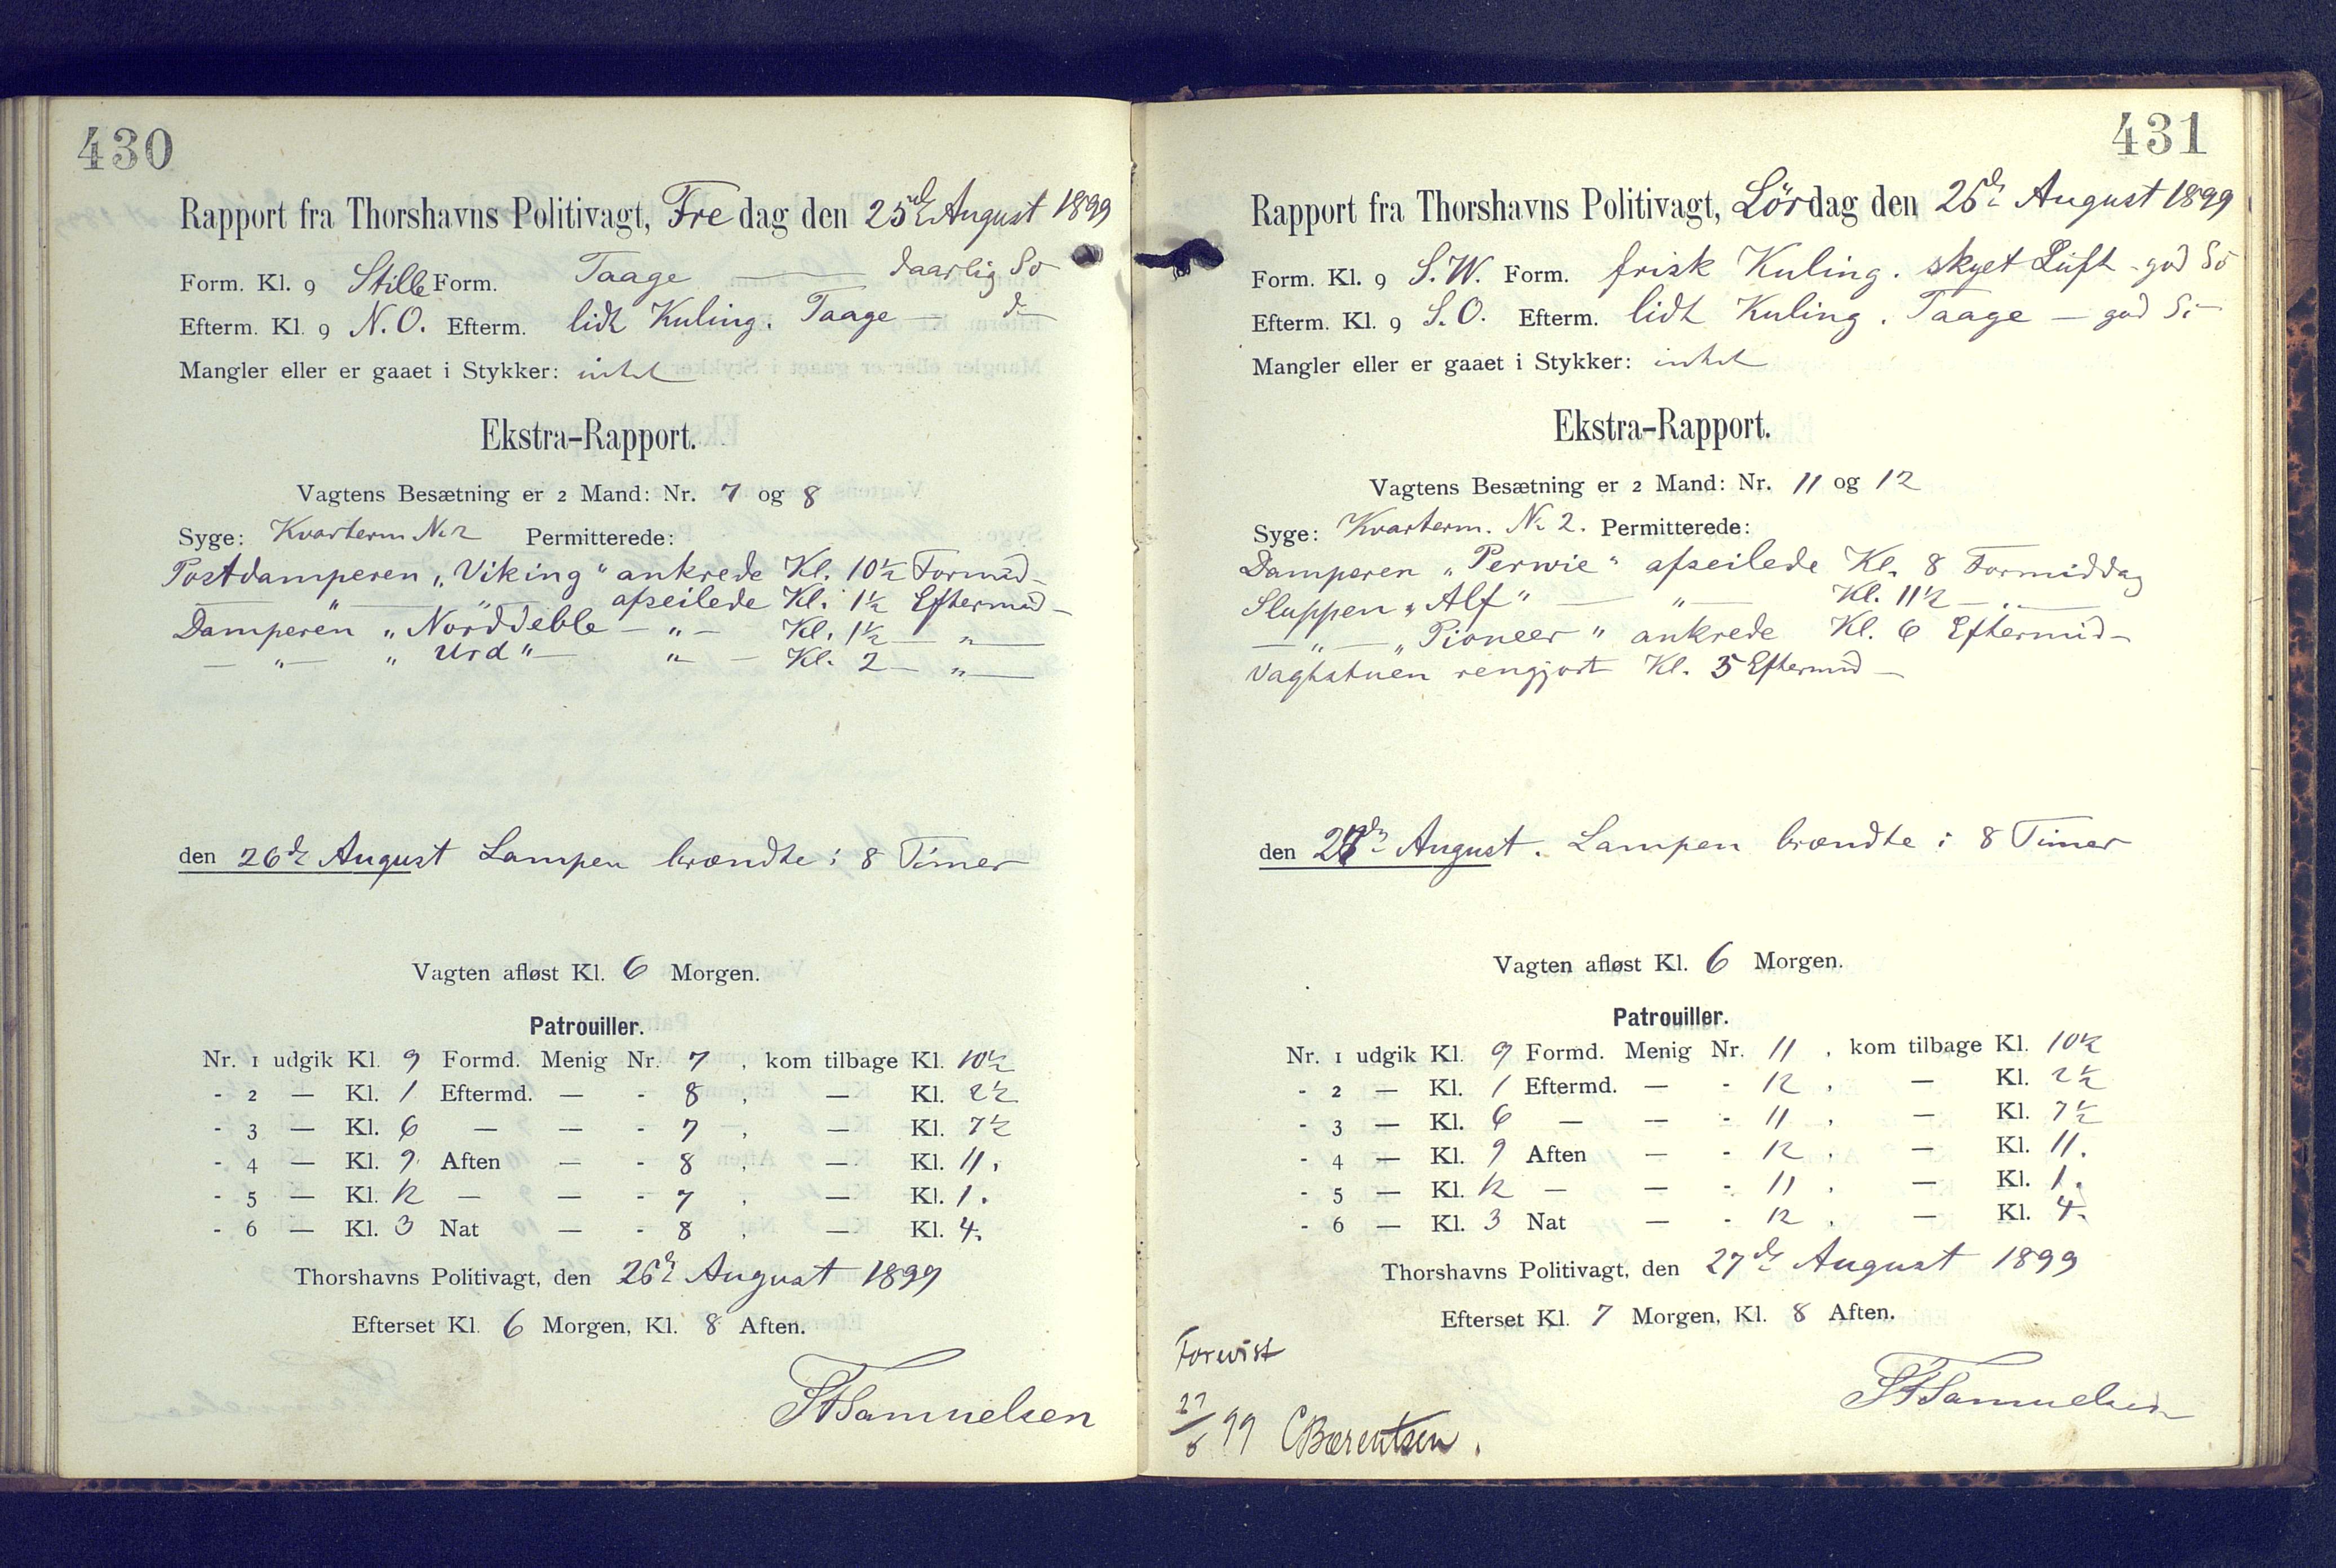 430
Rapport fra Thorshavns Politivagt, Fredag den 25de August 1899
Form. Kl. 9 Stille Form. Taage — daarlig So
Efterm. Kl. 9 N.O. Efterm. lidt Kuling. Taage — do
Mangler eller er gaaet i Stykker: intet
Ekstra-Rapport.
Vagtens Besætning er 2 Mand: Nr. 7 og 8
Syge: Kvarterm No 2 Permitterede:
Postdamperen „Viking“ ankrede Kl. 10½ Formid—
— „ — „ — afseilede Kl. 1½ Eftermid—
Damperen „Norddeble — „ — Kl. 1½ — „ —
— „ — „Urd“ — „ — Kl. 2 — „ —
den 26de August Lampen brændte i 8 Timer
Vagten afløst Kl. 6 Morgen.
Patrouiller.
Nr. 1 udgik Kl. 9 Formd. Menig Nr. 7, kom tilbage Kl. 10½
- 2 — Kl. 1 Eftermd. — - 8, — Kl. 2½
- 3 — Kl. 6 — — - 7, — Kl. 7½
- 4 — Kl. 9 Aften — - 8, — Kl. 11.
- 5 — Kl. 12 — — - 7, — Kl. 1.
- 6 — Kl. 3 Nat — - 8, — Kl. 4.
Thorshavns Politivagt, den 26de August 1899
Efterset Kl. 6 Morgen, Kl. 8 Aften.
Samuelsen
431
Rapport fra Thorshavns Politivagt, Lördag den 26de August 1899
Form. Kl. 9 S.W. Form. frisk Kuling. skyet Luft - god Sö
Efterm. Kl. 9 S.O. Efterm. lidt Kuling. Taage — god Sö
Mangler eller er gaaet i Stykker: intet
Ekstra-Rapport.
Vagtens Besætning er 2 Mand: Nr. 11 og 12
Syge: Kvarterm. No 2. Permitterede:
Damperen „Perwie“ afseilede Kl. 8 Formiddag
Sluppen „Alf“ — „ — Kl. 11½ — „ —
— „ — „Pioneer“ ankrede Kl. 6 Eftermid—
Vagtstuen rengjort Kl. 5 Eftermid—
den 27de August. Lampen brændte i 8 Timer
Vagten afløst Kl. 6 Morgen.
Patrouiller.
Nr. 1 udgik Kl. 9 Formd. Menig Nr. 11, kom tilbage Kl. 10½
- 2 — Kl. 1 Eftermd. — - 12, — Kl. 2½
- 3 — Kl. 6 — — - 11, — Kl. 7½
- 4 — Kl. 9 Aften — - 12, — Kl. 11.
- 5 — Kl. 12 — — - 11, — Kl. 1.
- 6 — Kl. 3 Nat — - 12, — Kl. 4.
Thorshavns Politivagt, den 27de August 1899
Efterset Kl. 7 Morgen, Kl. 8 Aften.
Samuelsen
Forevist
27/8 99 CBærentsen.